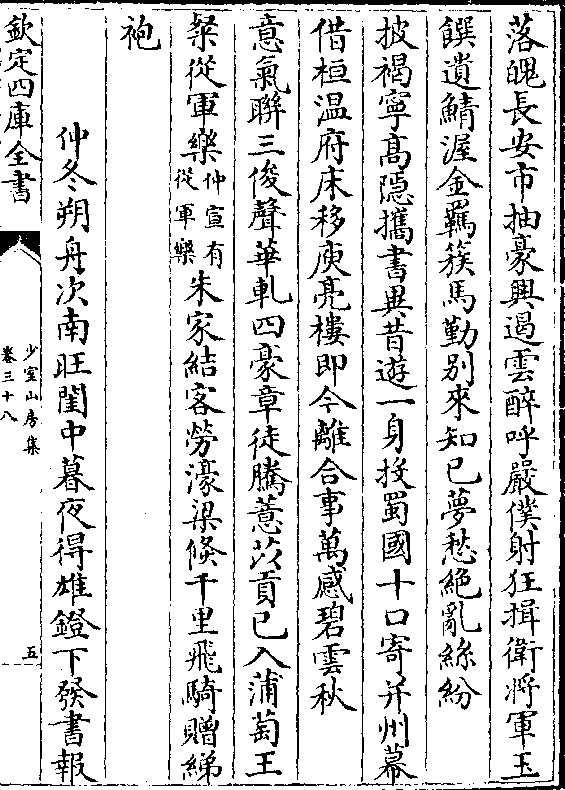 落魄長安市抽豪興遏雲醉呼嚴僕射狂揖衛將軍玉
饌遺鯖渥金羈簇馬勤别來知已夢愁絶亂絲紛
披褐寧髙隠攜書異昔遊一身投蜀國十口寄并州幕
借桓温府床移庾亮樓即今離合事萬感碧雲秋
意氣聯三俊聲華軋四豪章徒騰薏苡貢已入蒲萄王
粲從軍樂仲宣有從軍樂朱家結客勞濠梁倐千里飛騎贈綈
袍
仲冬朔舟次南旺閨中暮夜得雄鐙下發書報
欽定四庫全書
少室山房集
卷三十八
五